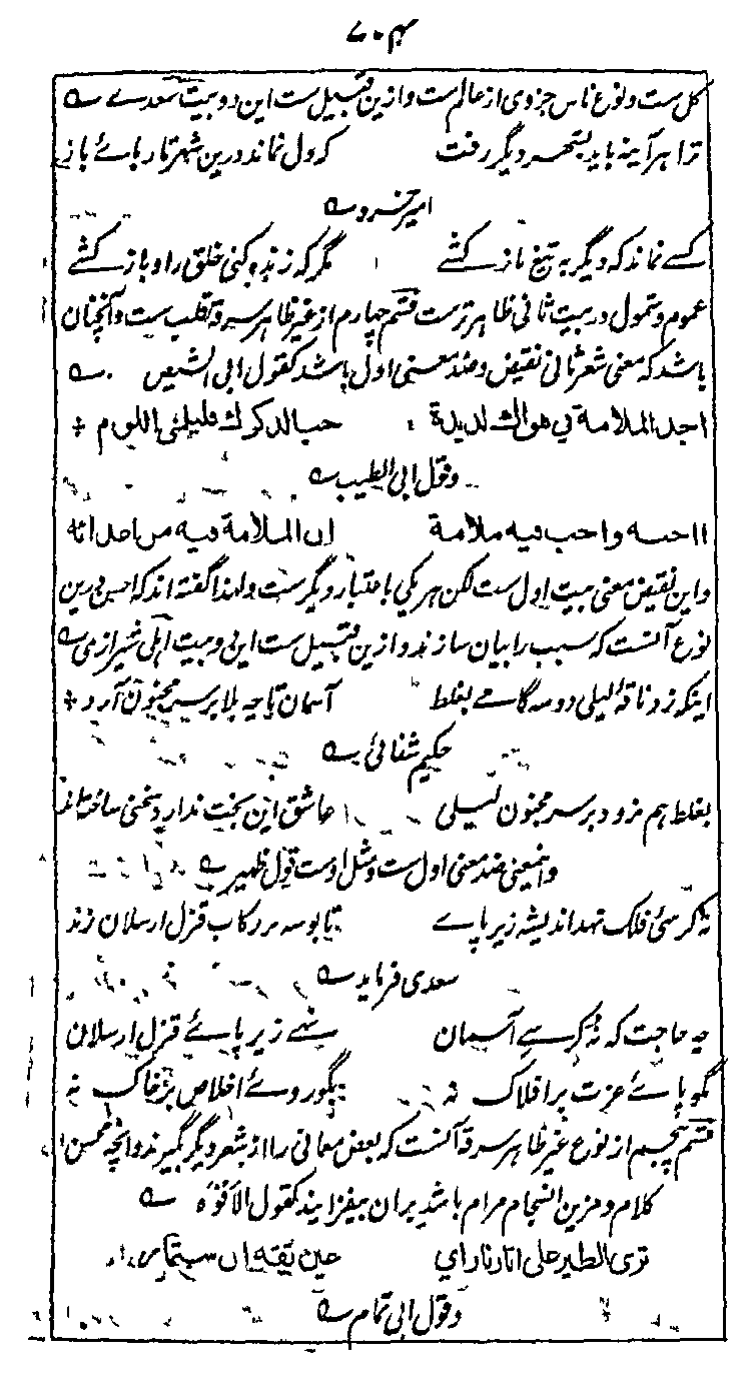 ۷۰۴
کل ست و نوع ناس جزوی از عالم ست و ازین قبیل ست این دو بیت سعدی ے
ترا هر آینه باید بشهر دیگر رفت که دل نماند درین شهر تا ربائے باز
امیر خسرو ے
کسے نماند که دیگر به تیغ ناز کشے مگر که زنده کنی خلق را و باز کشے
عموم و شمول در بیت ثانی ظاهر ترست قسم چهارم از غیر ظاهر سرقه قلب ست و آنچنان
باشد که معنی شعر ثانی نقیض و ضد معنی اول باشد کقول ابی الشیص ے
اجد الملامة في هواك لذيذة حبا لذكرك فليلمني اللوم
وقول ابی الطیب ے
ااحبه واحب فيه ملامة ان الملامة فيه من اعدائه
و این نقیض معنی بیت اول ست لکن هر یکی باعتبار دیگرست و لهذا گفته اند که احسن درین
نوع آنست که سبب را بیان سازند و ازین قبیل ست این دو بیت اهلی شیرازی ے
اینکه زد ناقۀ لیلی دو سه گامے بغلط آسمان تا چه بلا بر سر مجنون آرد
حکیم شفائی ے
بغلط هم نرود بر سر مجنون لیلی عاشق این بخت ندارد سخنی ساخته اند
و اینمعنی ضد معنی اول ست و مثل اوست قول ظهیر ے
نه کرسئ فلک نهد اندیشه زیر پاے تا بوسه بر رکاب قزل ارسلان زند
سعدی فرماید ے
چه حاجت که نه کرسے آسمان نہے زیر پائے قزل ارسلان
مگو پائے عزت بر افلاک نه بگو روئے اخلاص بر خاک نه
قسم پنجم از نوع غیر ظاهر سرقه آنست که بعض معانی را از شعر دیگر بگیرند و آنچه محسن
کلام و مزین انسجام مرام باشد بران بیفزایند کقول الافوه ے
ترى الطير على اثارنا راي عين ثقة ان ستمار
وقول ابی تمام ے